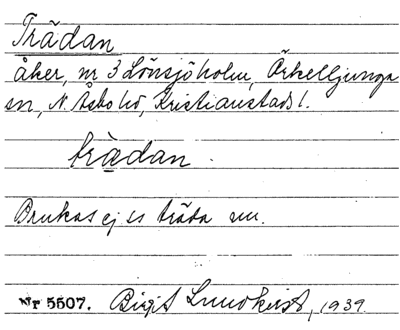 Trädan
åker, nr 3 Lönsjöholm, Örkelljunga
sn, N. Åsbo hd, Kristianstads l.
trädan.
Brukas ej ss träda nu.
Nr 5507. Birgit Lundkvist, 1939.